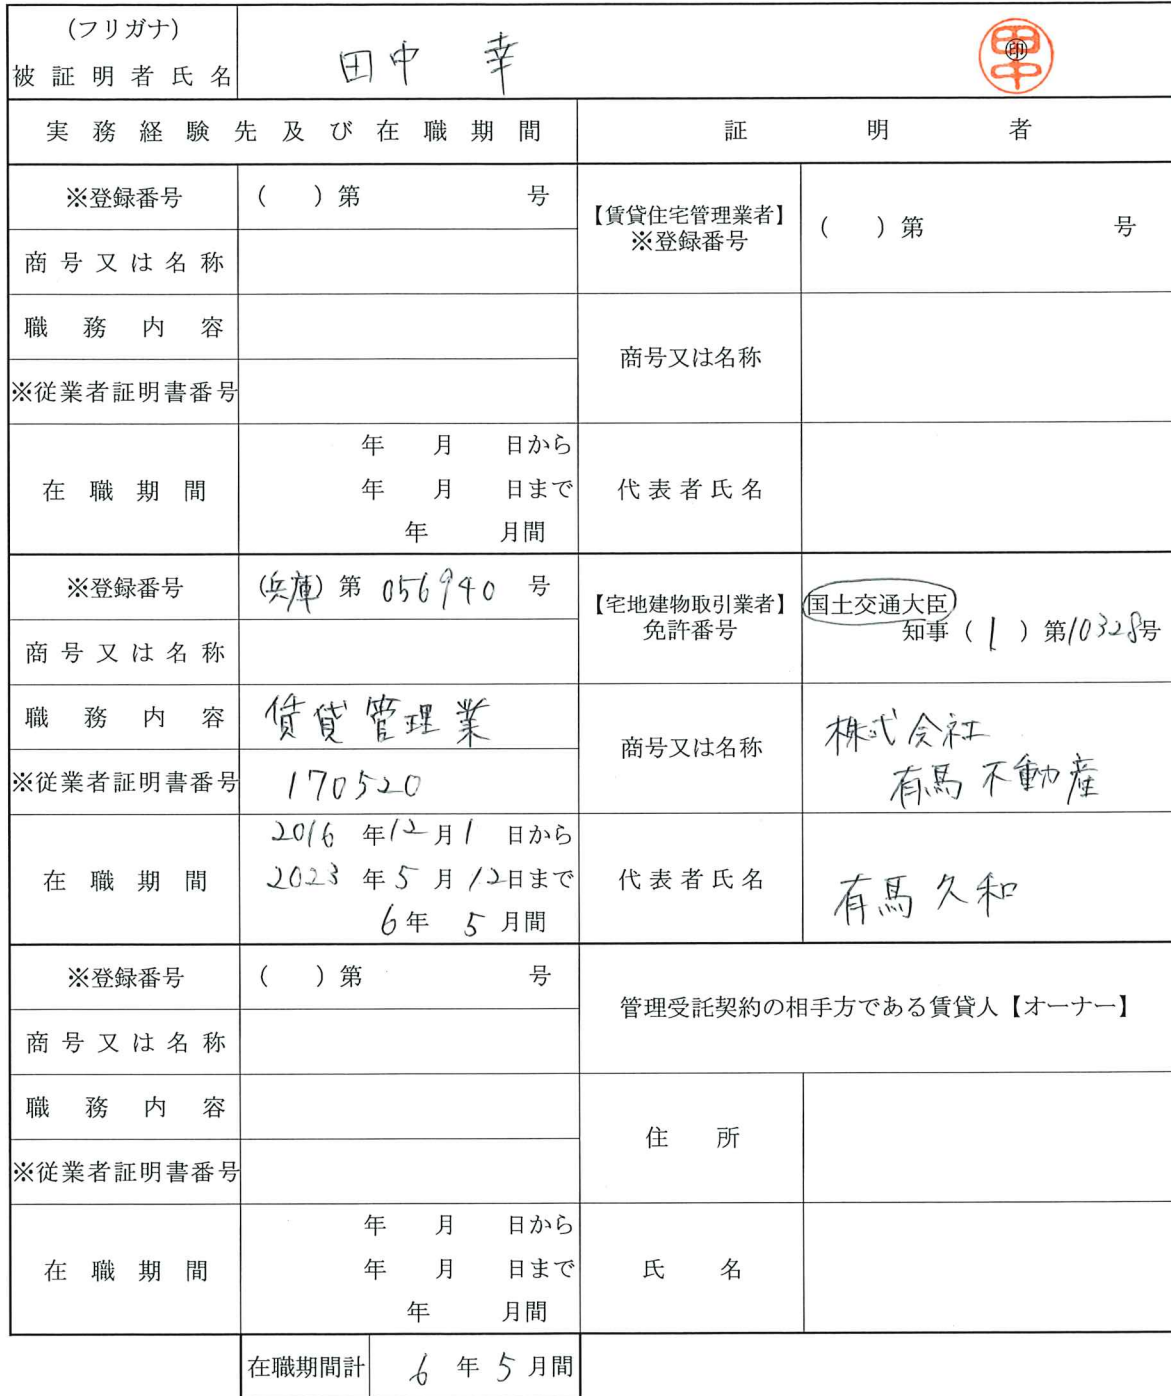 (フリガナ)
被証明者氏名 田中 幸 田中 ㊞
実務経験先及び在職期間 証明者
※登録番号 ( )第 号
【賃貸住宅管理業者】
※登録番号 ( )第 号
商号又は名称
職務内容
商号又は名称
※従業者証明書番号
在職期間
年 月 日から
年 月 日まで
年 月間
代表者氏名
※登録番号 (兵庫)第 056940 号
【宅地建物取引業者】
免許番号
国土交通大臣
知事(1)第10328号
商号又は名称
職務内容 賃貸管理業
商号又は名称
株式会社
有馬不動産
※従業者証明書番号 170520
在職期間
2016年12月1日から
2023年5月12日まで
6年5月間
代表者氏名 有馬久和
※登録番号 ( )第 号
管理受託契約の相手方である賃貸人【オーナー】
商号又は名称
職務内容
住所
※従業者証明書番号
在職期間
年 月 日から
年 月 日まで
年 月間
氏名
在職期間計 6年5月間